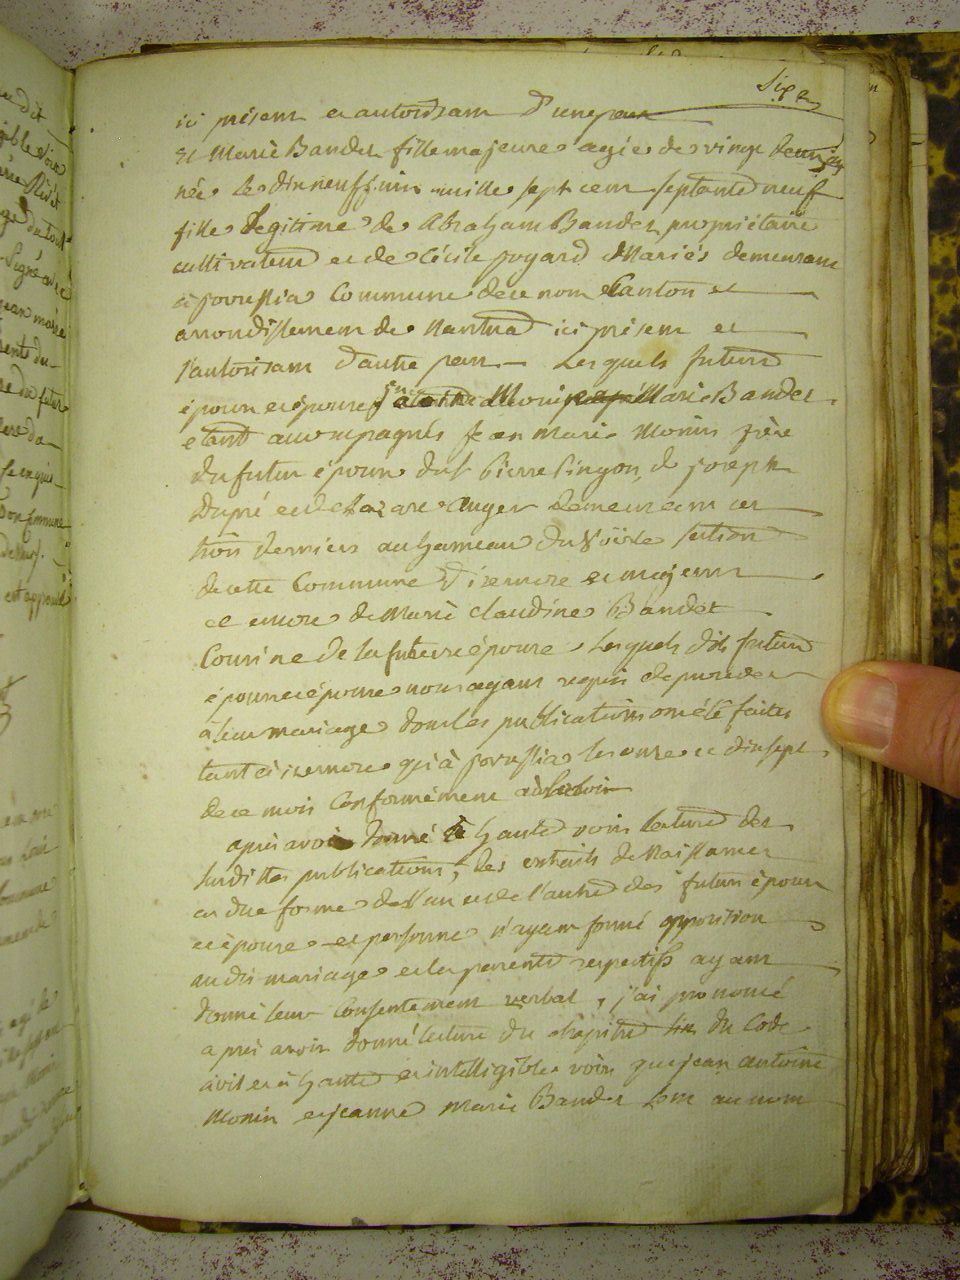 Six
ici présent et autorisant d'une part
Et Marie Bandet fille majeure agée de vingt
née le dix neuf juin mille sept cent septante neuf
fille légitime de Abraham Bandet propriétaire
cultivateur et de Cécile Jogard Mariés demeurant
à Commune de ce nom Canton et
arrondissement de Nantua ici présent et
l'autorisant d'autre part Lesquels futurs
époux et épouse Marie Bandet
etant accompagnés Jean Marie Monin frère
du futur époux du Sr Pierre Pingon, de joseph
Dupré et de Lazare Auger demeurant ces
trois derniers au hameau du Voërle section
de cette Commune d'izernore et majeurs
et encore de Marie Claudine Bandet
Cousine de la future épouse Lesquels dits futurs
époux et épouse nous ayant requis de procéder
à leur mariage dont les publications ont été faites
tant à izernore qu'à les onze et dix sept
de ce mois Conformément à la loi
après avoir donné à haute voix lecture des
susdites publications, des extraits de Naissances
en due forme de l'un et de l'autre des futurs époux
et épouse et personne n'ayant formé opposition
au dit mariage et les parents respectifs ayant
donné leur Consentement verbal, j'ai prononcé
après avoir donné lecture du chapitre six du Code
civil et à haute et intelligible voix que jean antoine
Monin et jeanne Marie Bandet sont au nom